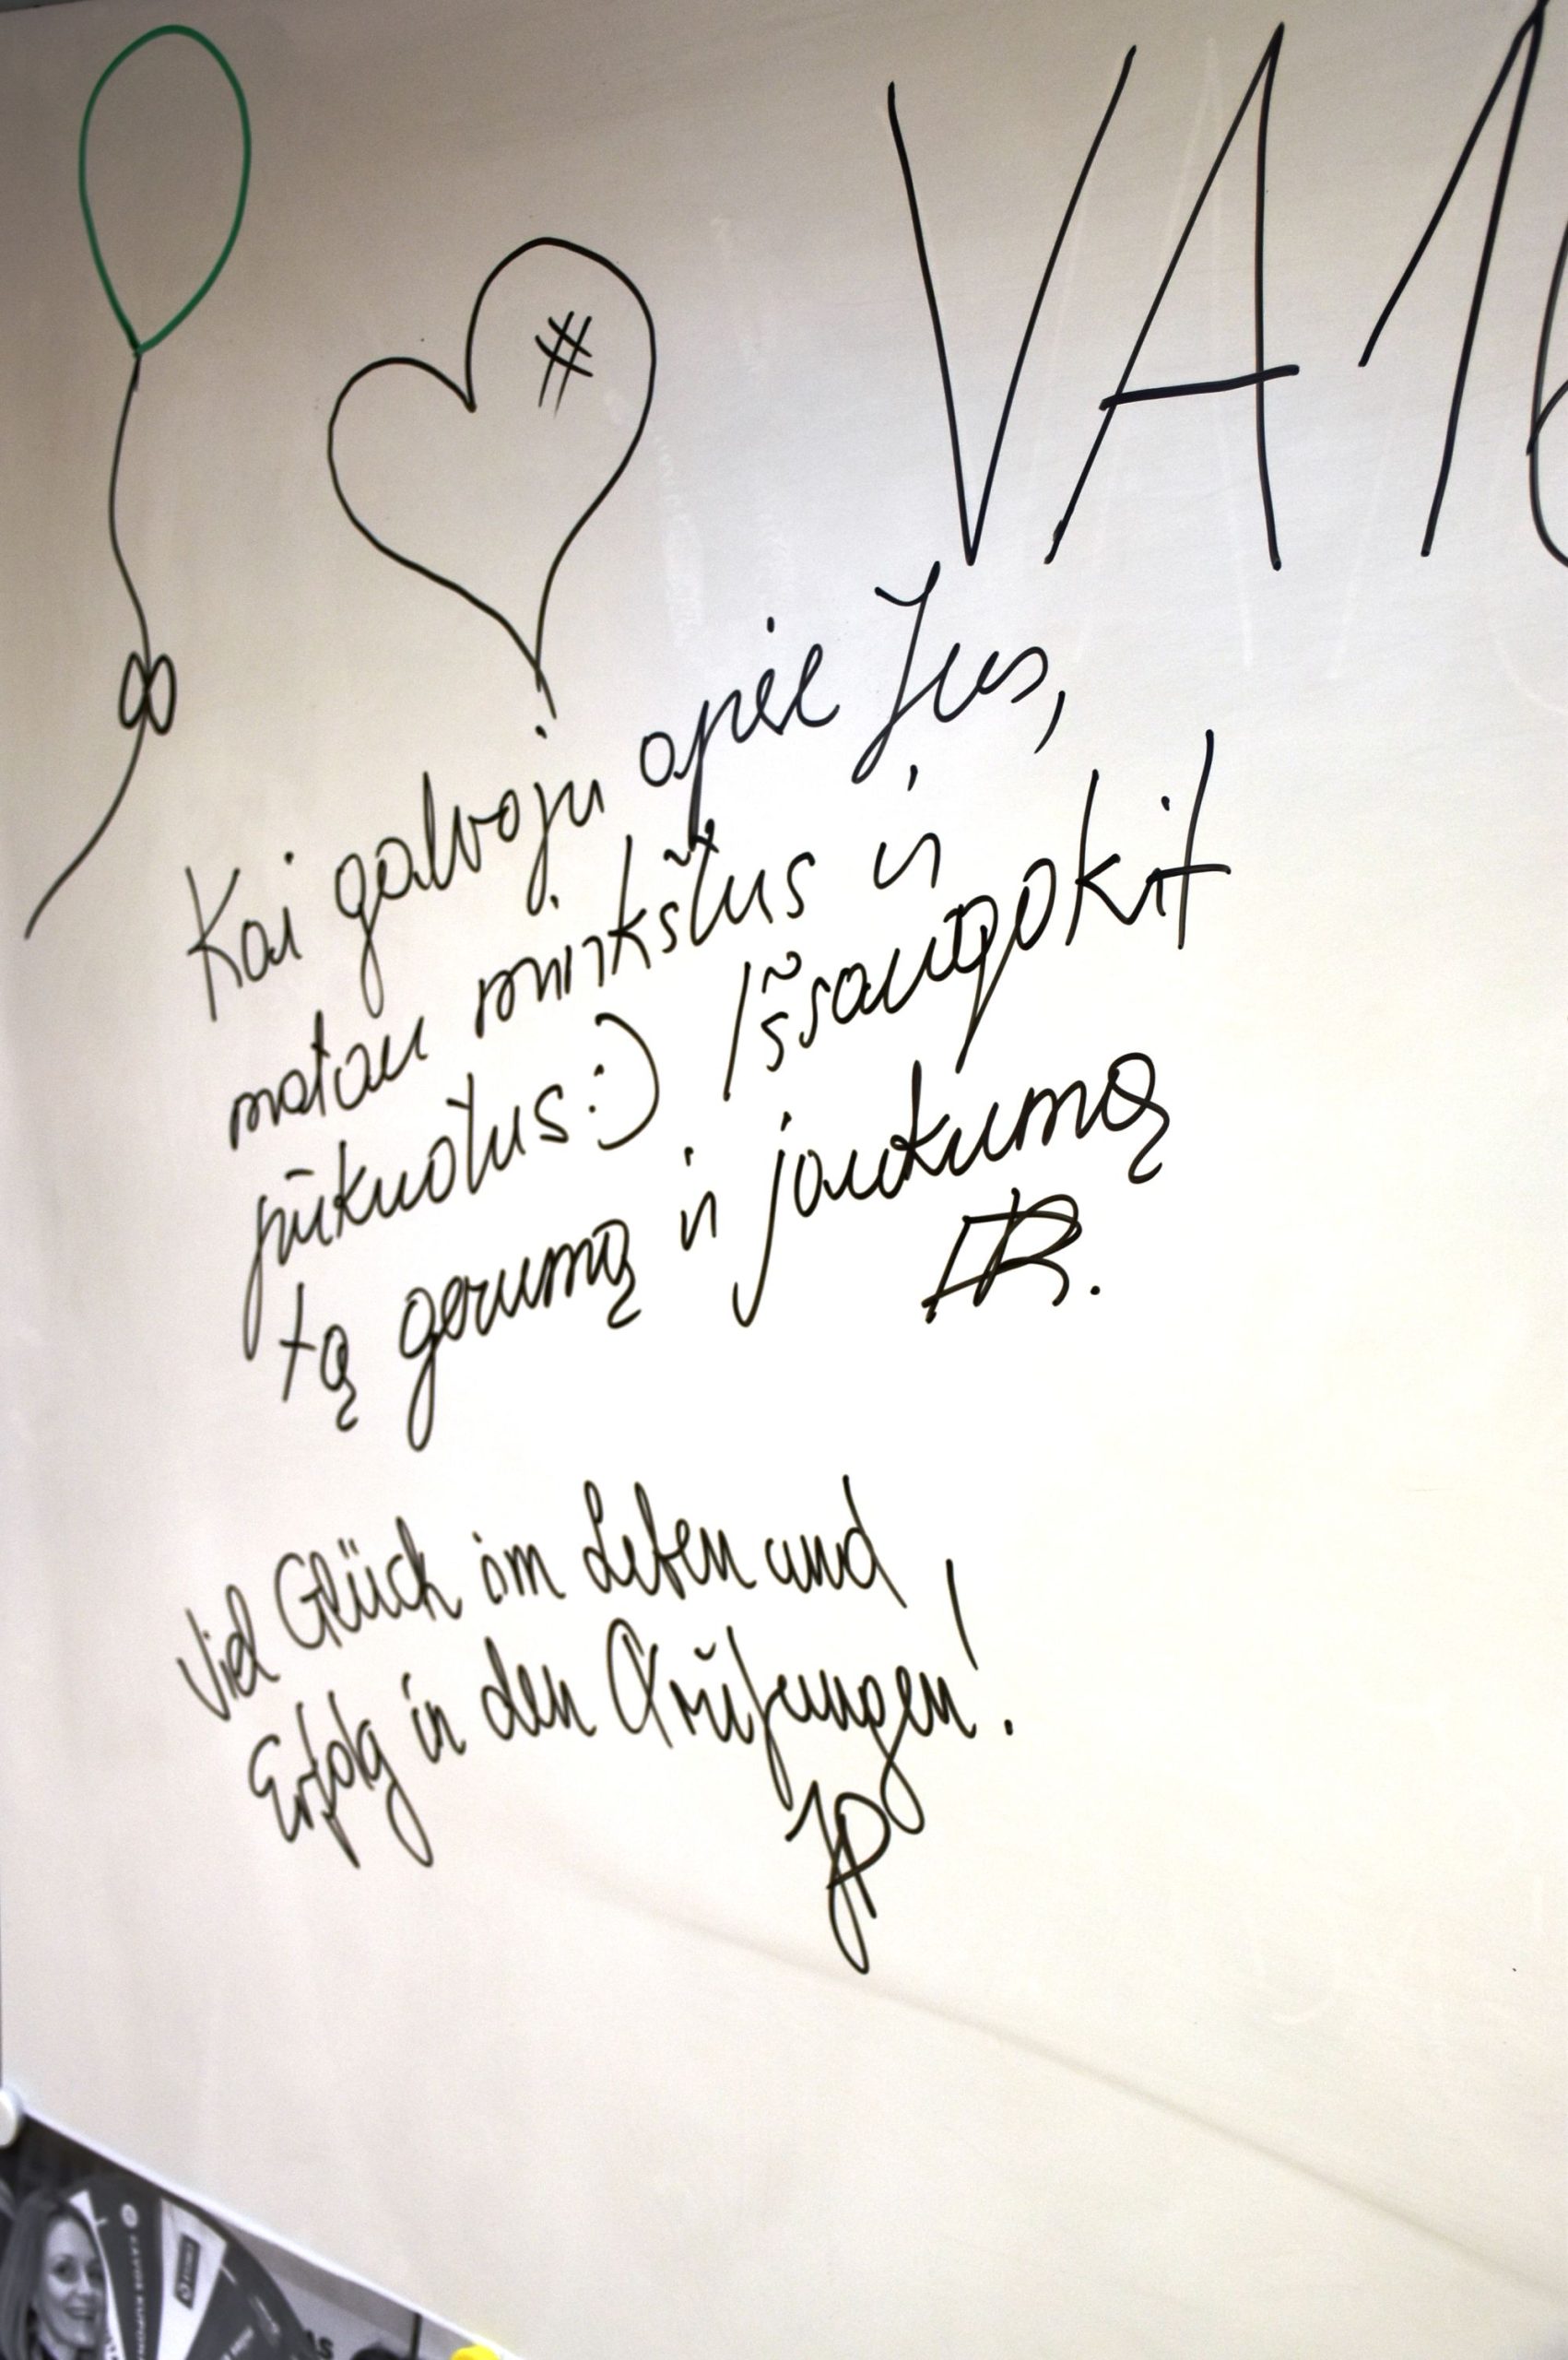 VA16
#
Kai galvoju apie Jus,
matau minkštus ir
pūkuotus :) Išsaugokit
tą gerumą ir jaukumą
Viel Glück im Leben und
Erfolg in den Prüfungen!
JP